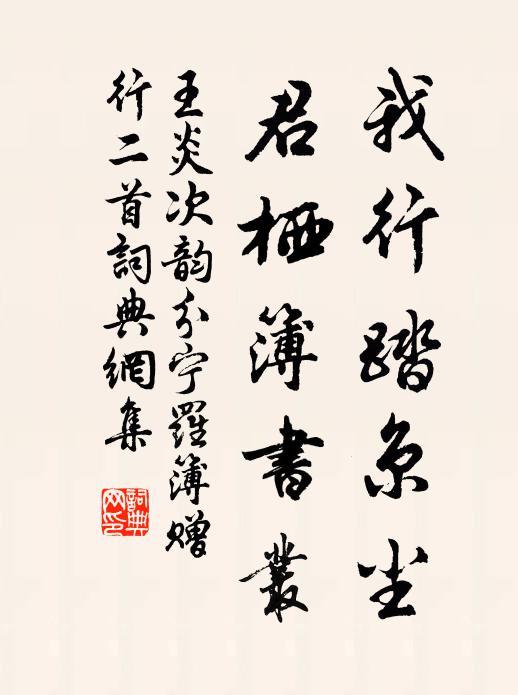 我行踏京尘
君栖簿书丛
王炎次韵分宁罗簿赠
行二首词典网集
词典网印